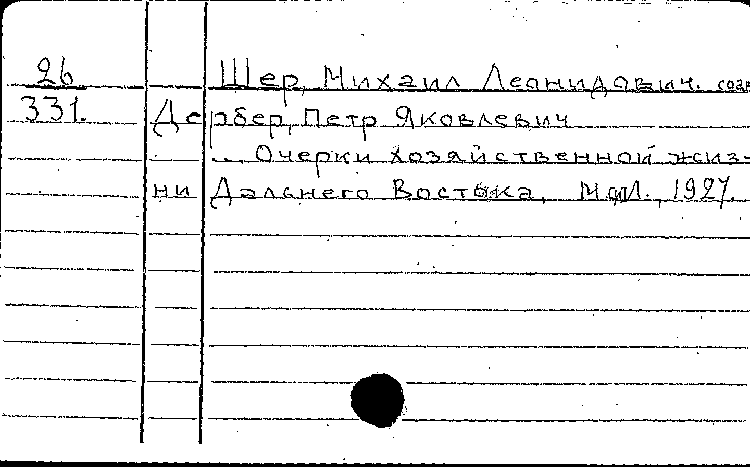 26 Шер, Михаил Леонидович. соав
331. Дербер, Петр Яковлевич
... Очерки хозяйственной жиз-
ни Дальнего Востока, М.и Л., 1927.